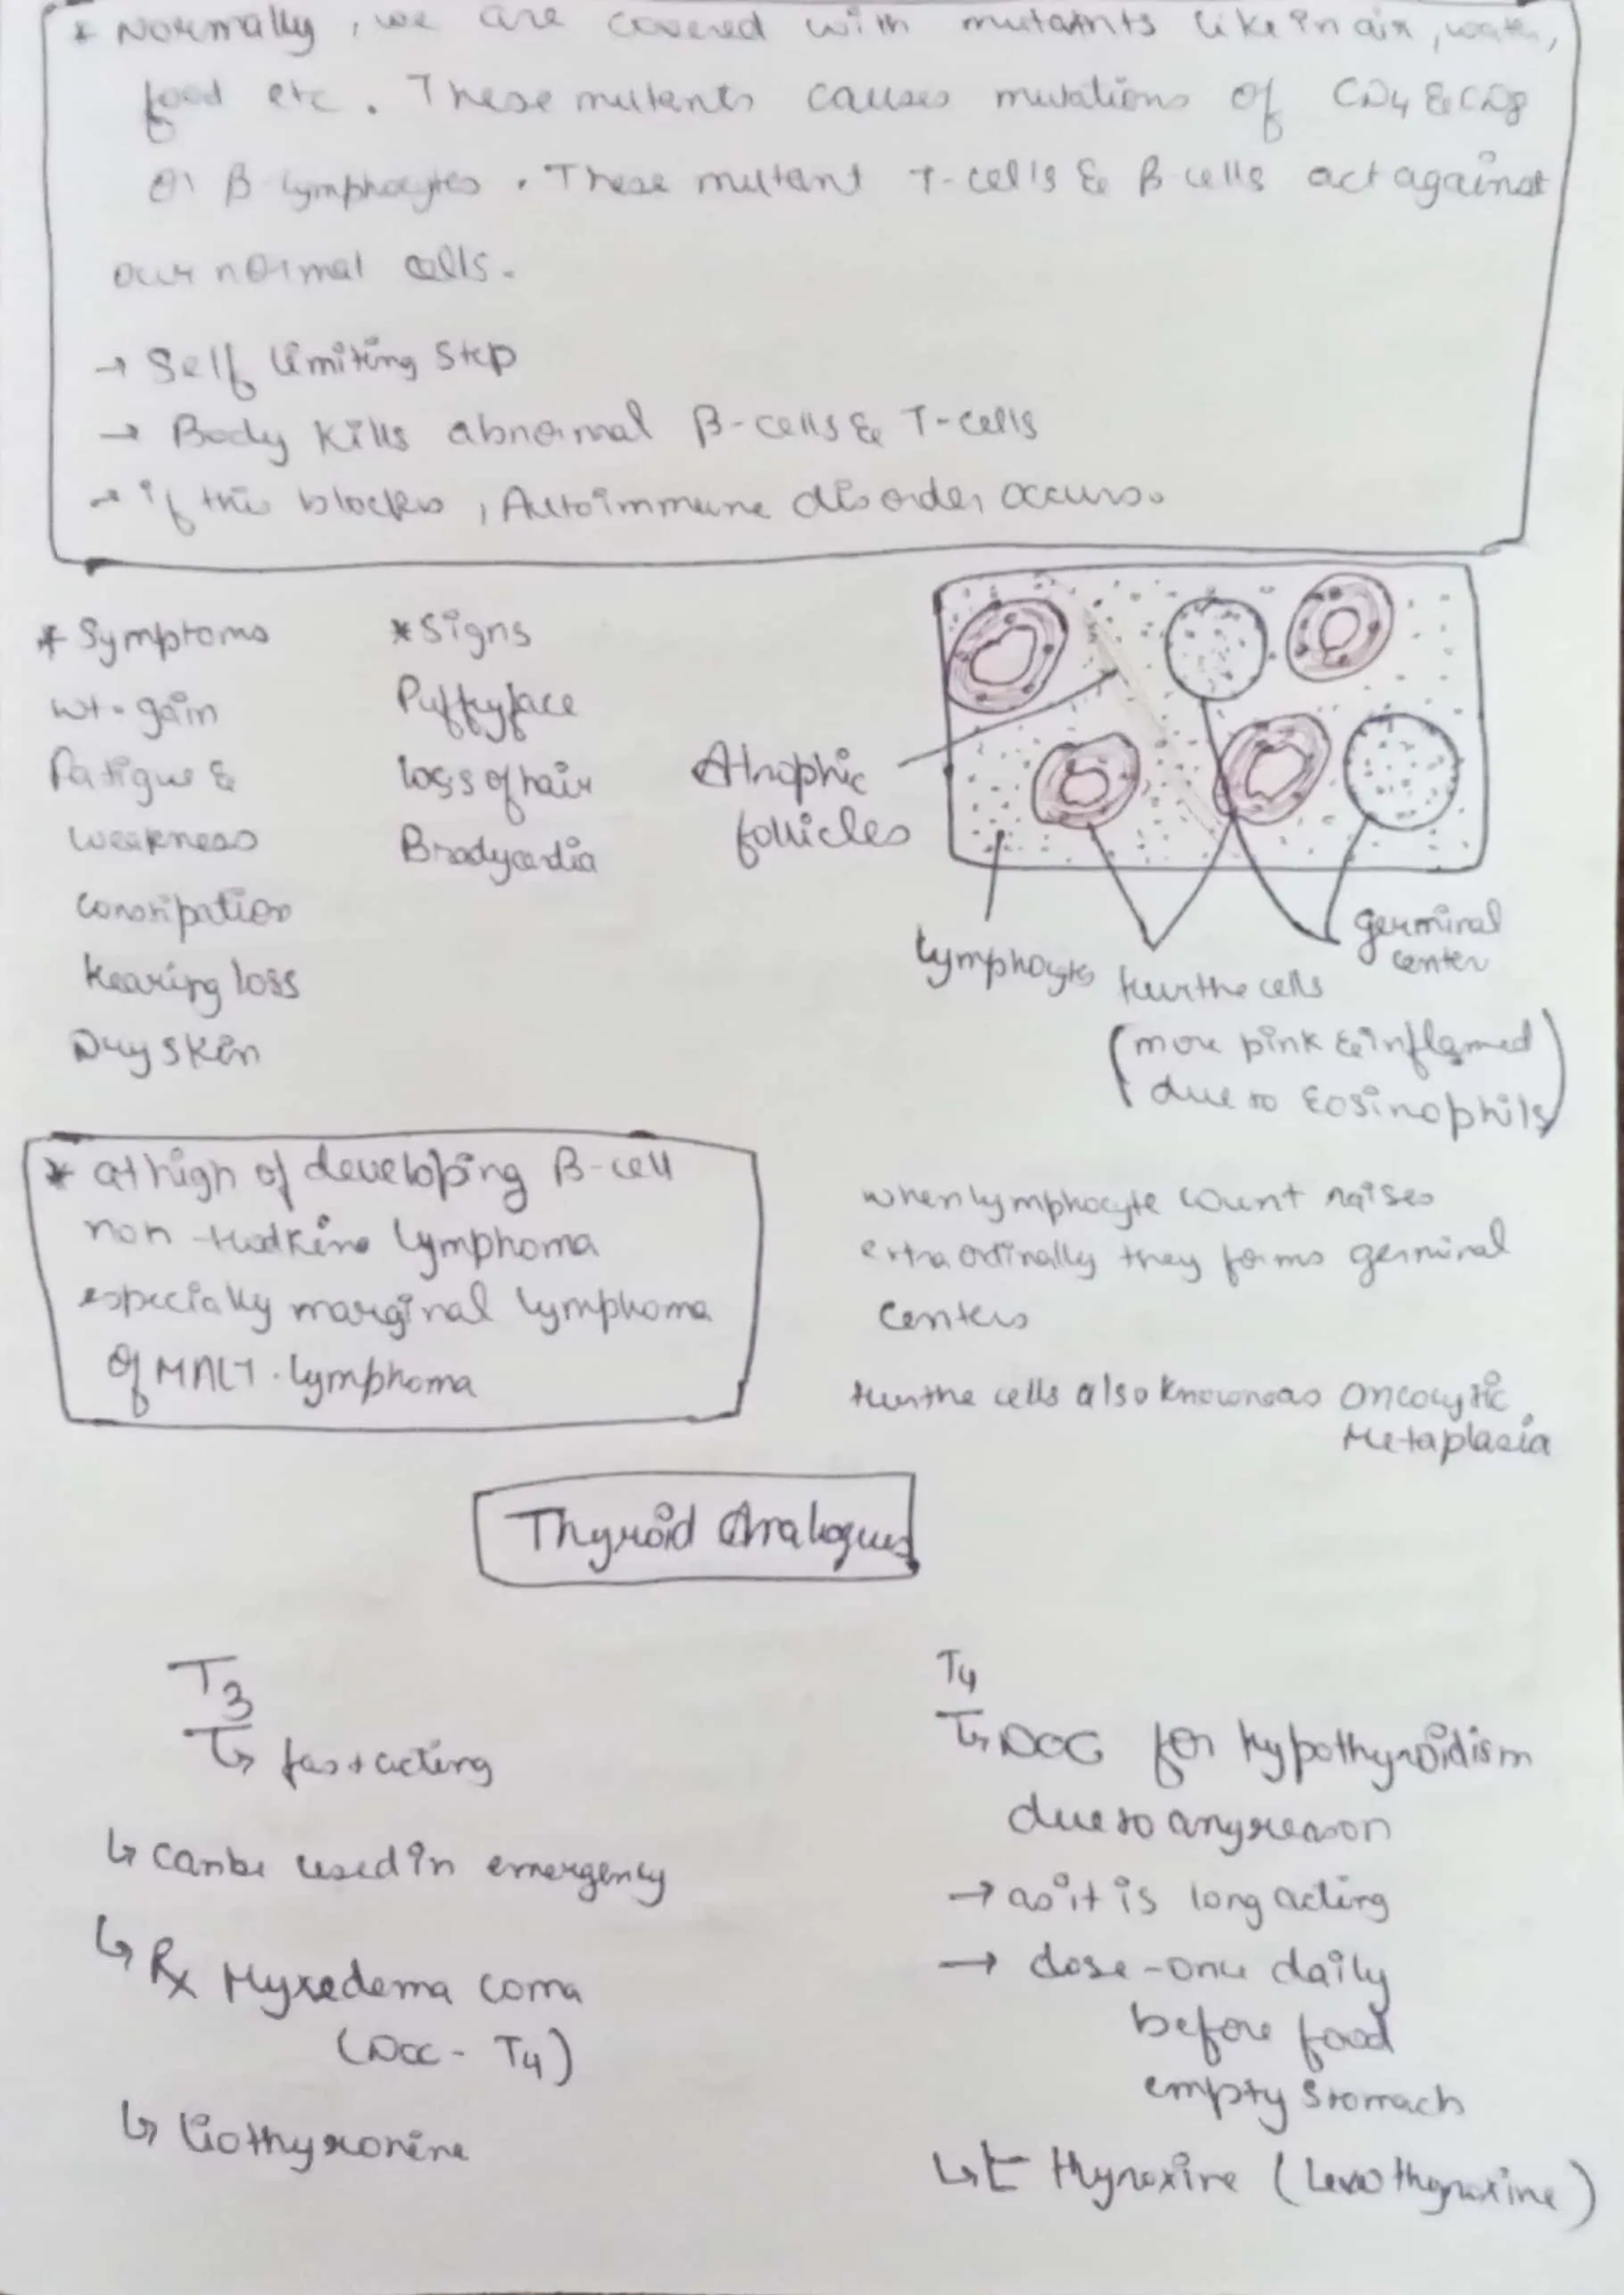 * Normally, we are covered with mutants like in air, water,
food etc. These mutants causes mutations of CD4 & CD8
or B-lymphocytes. These mutant T-cells & B cells act against
our normal cells.
→ Self limiting step
→ Body kills abnormal B-cells & T-cells
→ if this blocks, Autoimmune disorder occurs.
* Symptoms
wt-gain
Fatigue &
weakness
constipation
Hearing loss
Dry skin
* Signs
Puffy face
loss of hair
Bradycardia
Atrophic
follicles
lymphocytes
hurthe cells
(more pink & inflamed
due to Eosinophils)
germinal
center
* at high of developing B-cell
non-Hodkins lymphoma
especially marginal lymphoma
of MALT-lymphoma
when lymphocyte count raises
extraordinally they forms germinal
centers
hurthe cells also known as oncocytic
Metaplasia
Thyroid Analogues
T3
↳ fast acting
↳ can be used in emergency
↳ Rx Myxedema coma
(DOC - T4)
↳ liothyronine
T4
↳ DOC for hypothyroidism
due to any reason
→ as it is long acting
→ dose-once daily
before food
empty stomach
↳ L thyroxine (Levothyroxine)